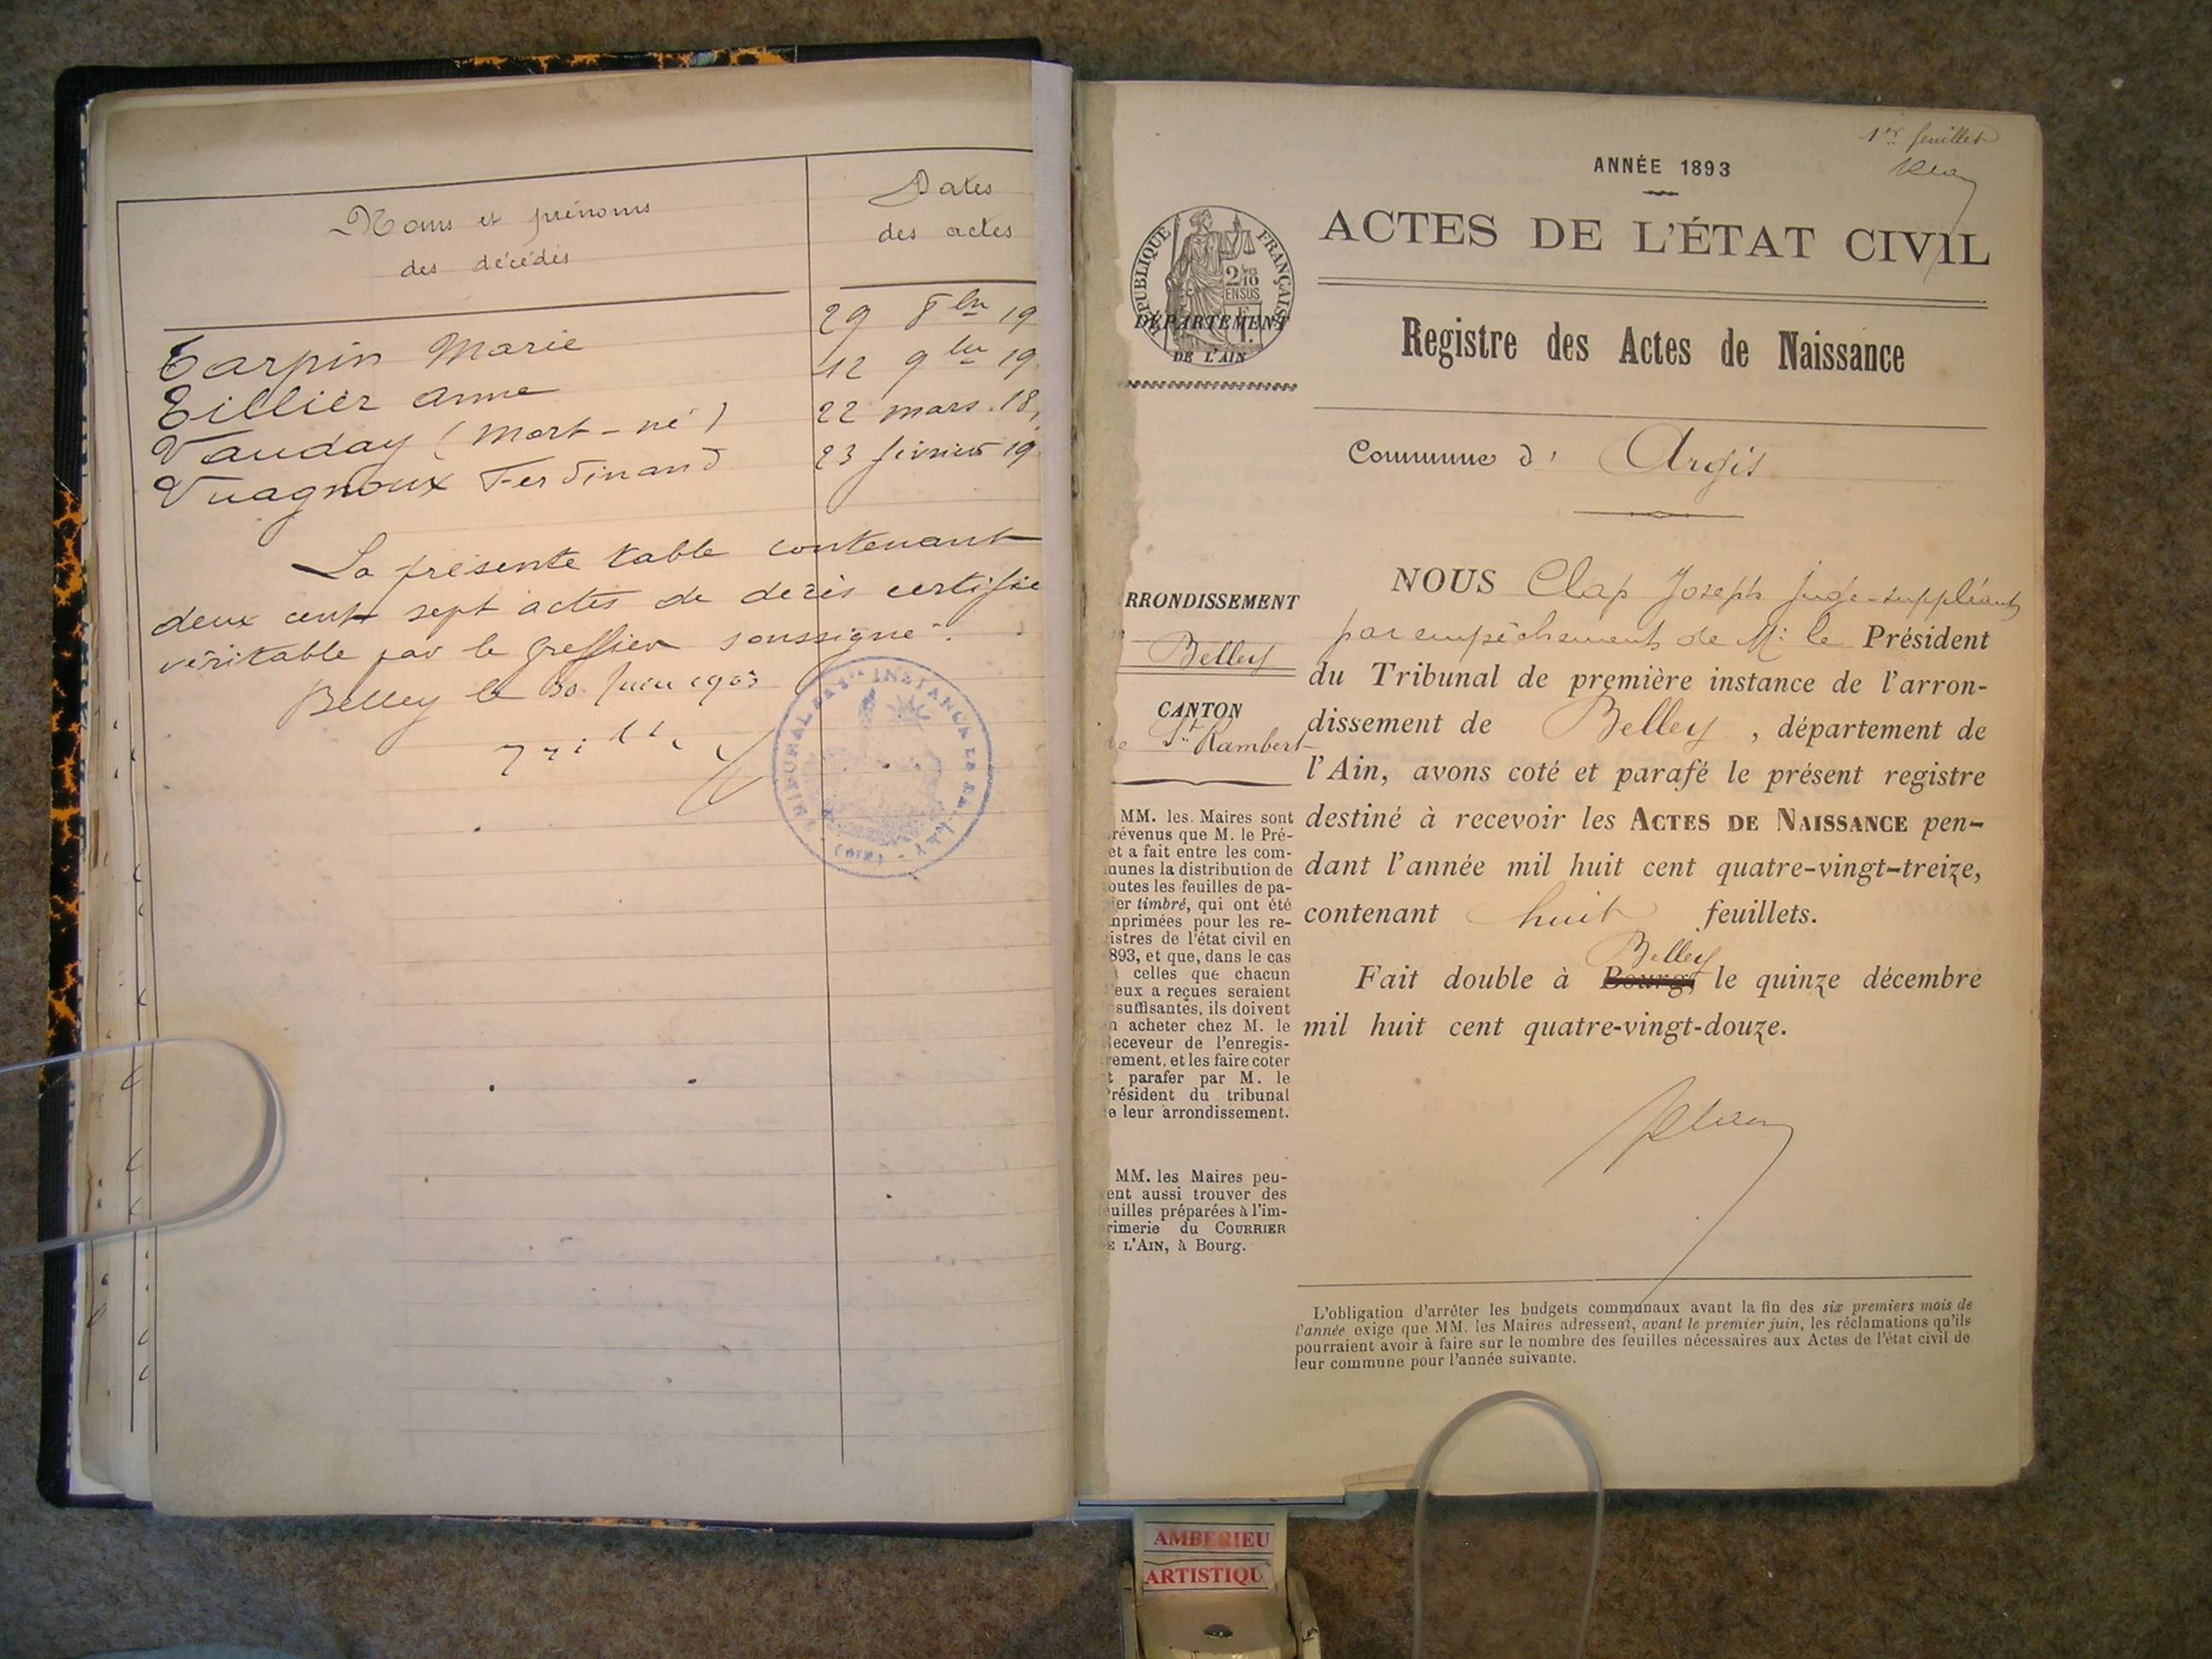 Noms et prénoms
des décédés
Dates
des actes
Tarpin Marie 29 8bre 19
Tillier Anne 12 9bre 19
Vauday (Mort-né) 22 mars 18
Vuagnoux Ferdinand 23 février 19
La présente table contenant
deux cent sept actes de décès certifiée
véritable par le Greffier soussigné.
Belley le 30 Juin 1903
TRIBUNAL DE 1re INSTANCE DE BELLEY
(AIN)
1er feuillet
ANNÉE 1893
ACTES DE L'ÉTAT CIVIL
RÉPUBLIQUE FRANÇAISE
2/10
EN SUS
DÉPARTEMENT
DE L'AIN
Registre des Actes de Naissance
Commune d' Argis
RRONDISSEMENT
Belley
CANTON
de St Rambert
MM. les Maires sont
révenus que M. le Pré-
et a fait entre les com-
unes la distribution de
outes les feuilles de pa-
ier timbré, qui ont été
mprimées pour les re-
istres de l'état civil en
893, et que, dans le cas
celles que chacun
eux a reçues seraient
suffisantes, ils doivent
n acheter chez M. le
eceveur de l'enregis-
rement, et les faire coter
t parafer par M. le
résident du tribunal
e leur arrondissement.
MM. les Maires peu-
ent aussi trouver des
euilles préparées à l'im-
rimerie du COURRIER
E L'AIN, à Bourg.
NOUS Clap Joseph Juge-suppléant
par empêchement de Mr le Président
du Tribunal de première instance de l'arron-
dissement de Belley, département de
l'Ain, avons coté et parafé le présent registre
destiné à recevoir les ACTES DE NAISSANCE pen-
dant l'année mil huit cent quatre-vingt-treize,
contenant huit feuillets.
Belley
Fait double à Bourg, le quinze décembre
mil huit cent quatre-vingt-douze.
L'obligation d'arrêter les budgets communaux avant la fin des six premiers mois de
l'année exige que MM. les Maires adressent, avant le premier juin, les réclamations qu'ils
pourraient avoir à faire sur le nombre des feuilles nécessaires aux Actes de l'état civil de
leur commune pour l'année suivante.
AMBERIEU
ARTISTIQU